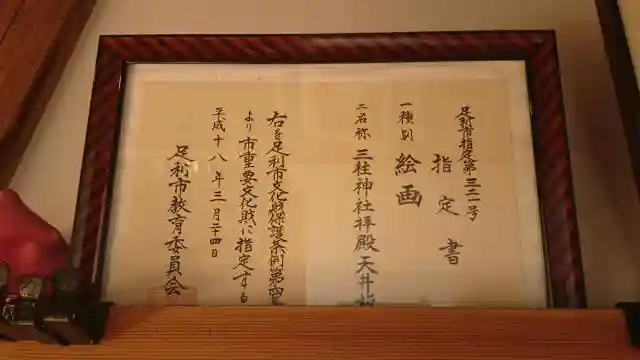 足利市指定第三二一号
指定書
一種別 絵画
二名称 三柱神社拝殿天井
右を足利市文化財保護条例第四
より市重要文化財に指定する
平成十八年三月二十四日
足利市教育委員会